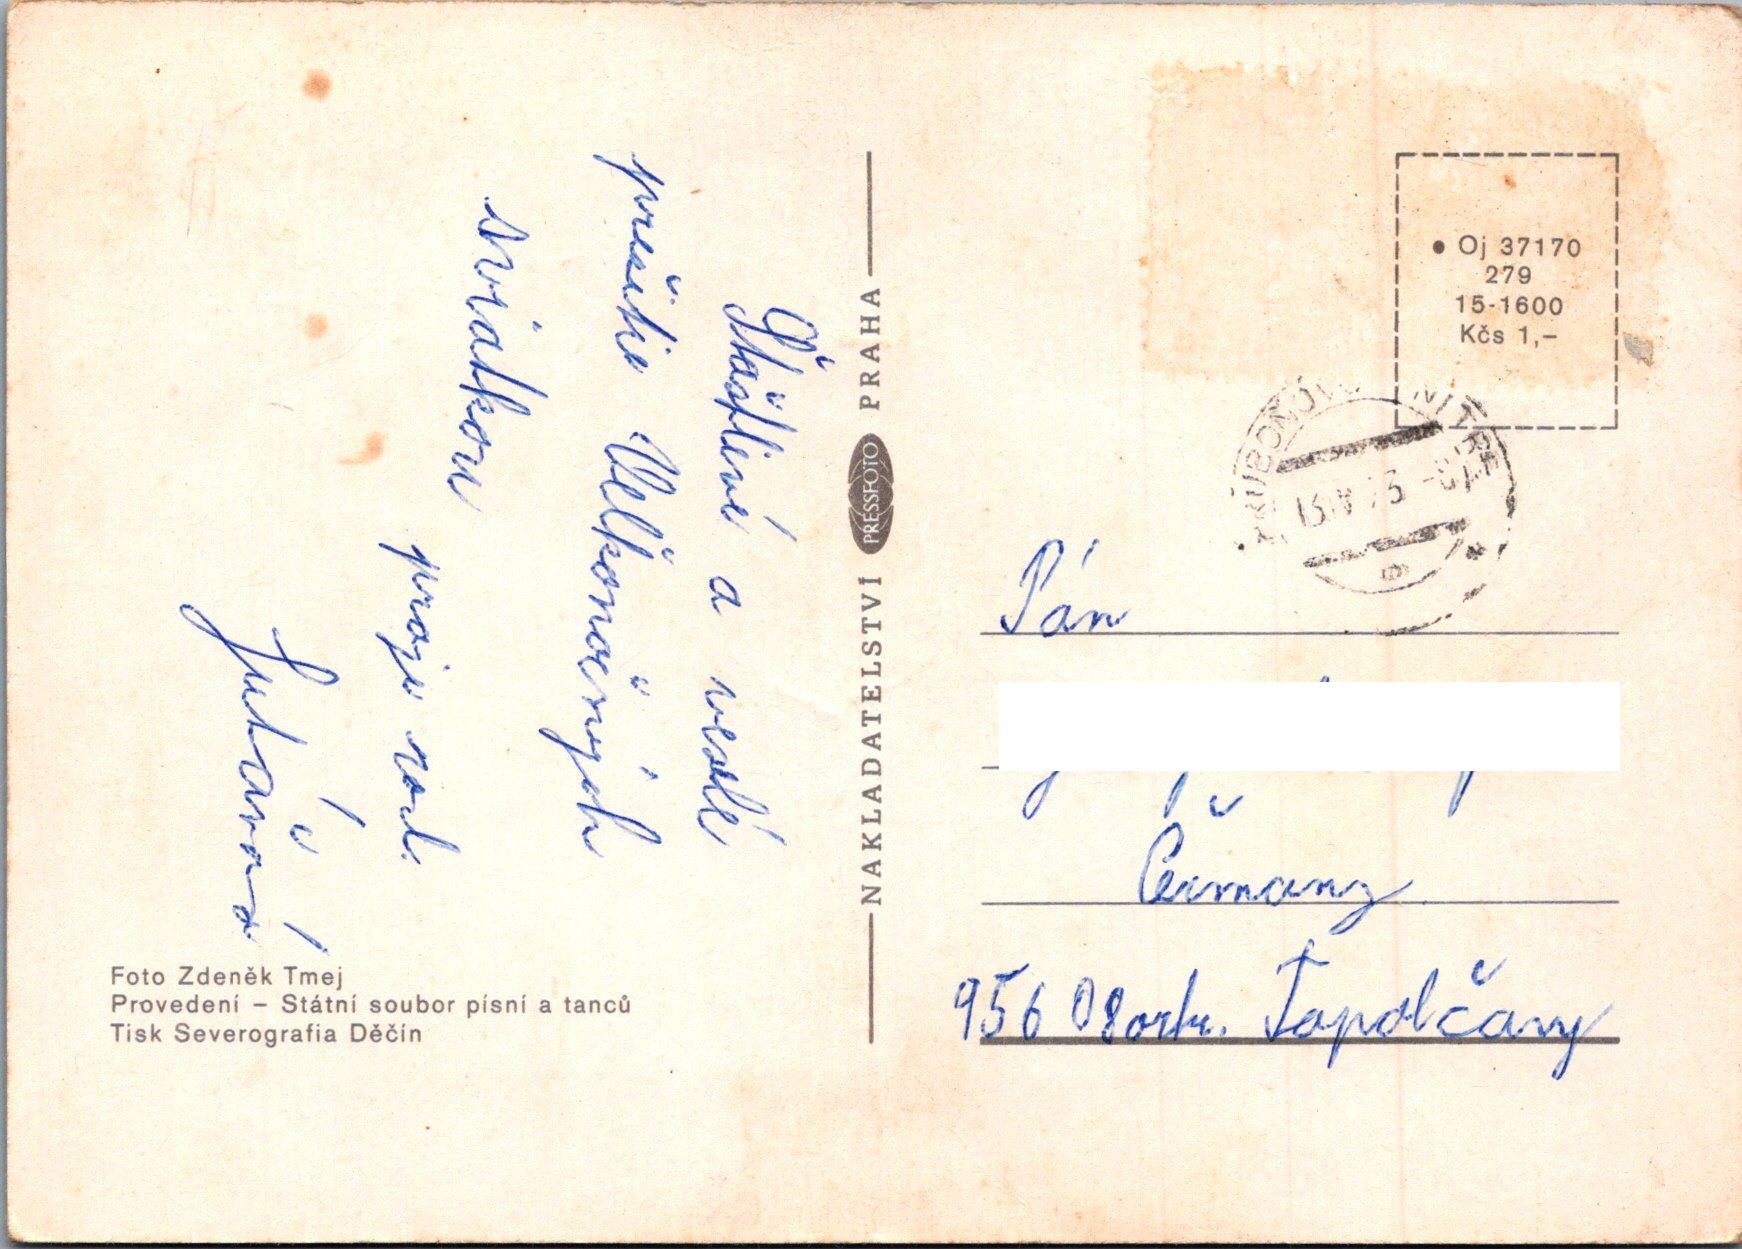 Šťastlivé a veselé
prežitie Veľkonočných
sviatkov
praje rod.
Foto Zdeněk Tmej
Provedení – Státní soubor písní a tanců
Tisk Severografia Děčín
NAKLADATELSTVÍ PRESSFOTO PRAHA
• Oj 37170
279
15-1600
Kčs 1,–
NITRE
Pán
Čermany
956 08 okr. Topolčany